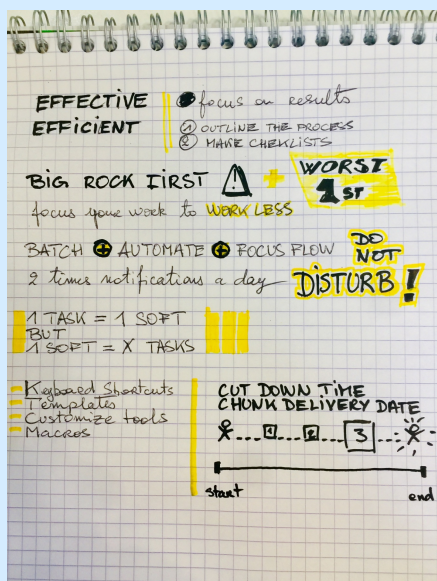 EFFECTIVE ● focus on results
EFFICIENT ① OUTLINE THE PROCESS
② MAKE CHEKLISTS
BIG ROCK FIRST ! + WORST 1ST
focus your work to WORK LESS
BATCH + AUTOMATE + FOCUS FLOW
2 times notifications a day
DO NOT DISTURB !
1 TASK = 1 SOFT
BUT
1 SOFT = X TASKS
Keyboard Shortcuts
Templates
Customize tools
Macros
CUT DOWN TIME
CHUNK DELIVERY DATE
1 2 3
start end